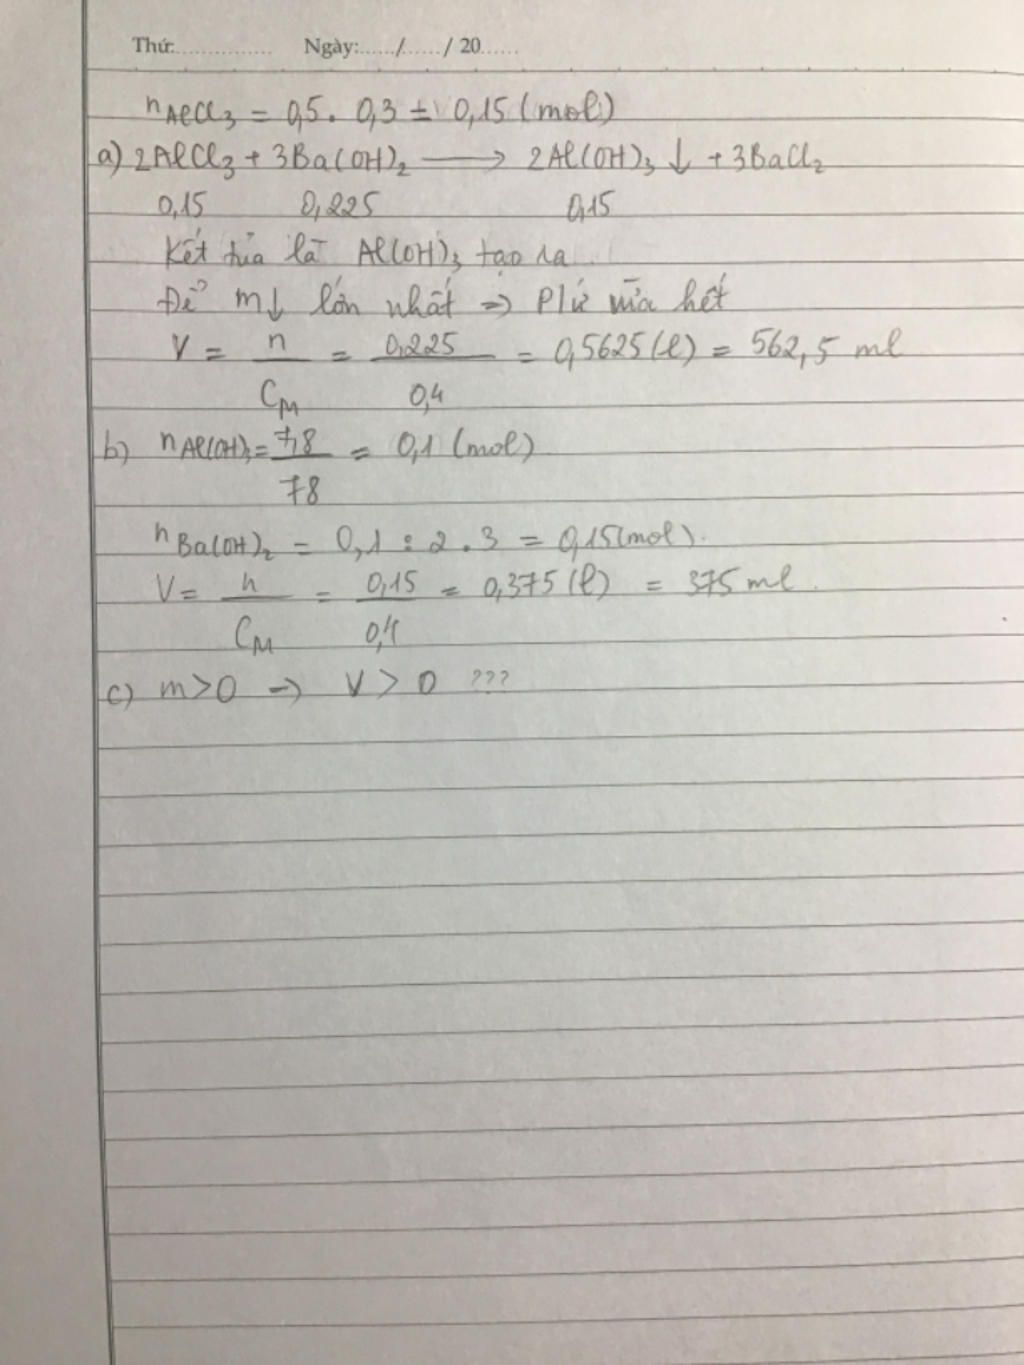 Thứ:............... Ngày:....../....../ 20......
nAlCl3 = 0,5 . 0,3 = 0,15 (mol)
a) 2AlCl3 + 3Ba(OH)2 → 2Al(OH)3 ↓ + 3BaCl2
0,15 0,225 0,15
Kết tủa là Al(OH)3 tạo ra
Để m↓ lớn nhất => P/ứ vừa hết
V = n/CM = 0,225/0,4 = 0,5625 (l) = 562,5 ml
b) nAl(OH)3 = 7,8/78 = 0,1 (mol)
nBa(OH)2 = 0,1 : 2 . 3 = 0,15 (mol).
V = n/CM = 0,15/0,4 = 0,375 (l) = 375 ml.
c) m>0 → V > 0 ???